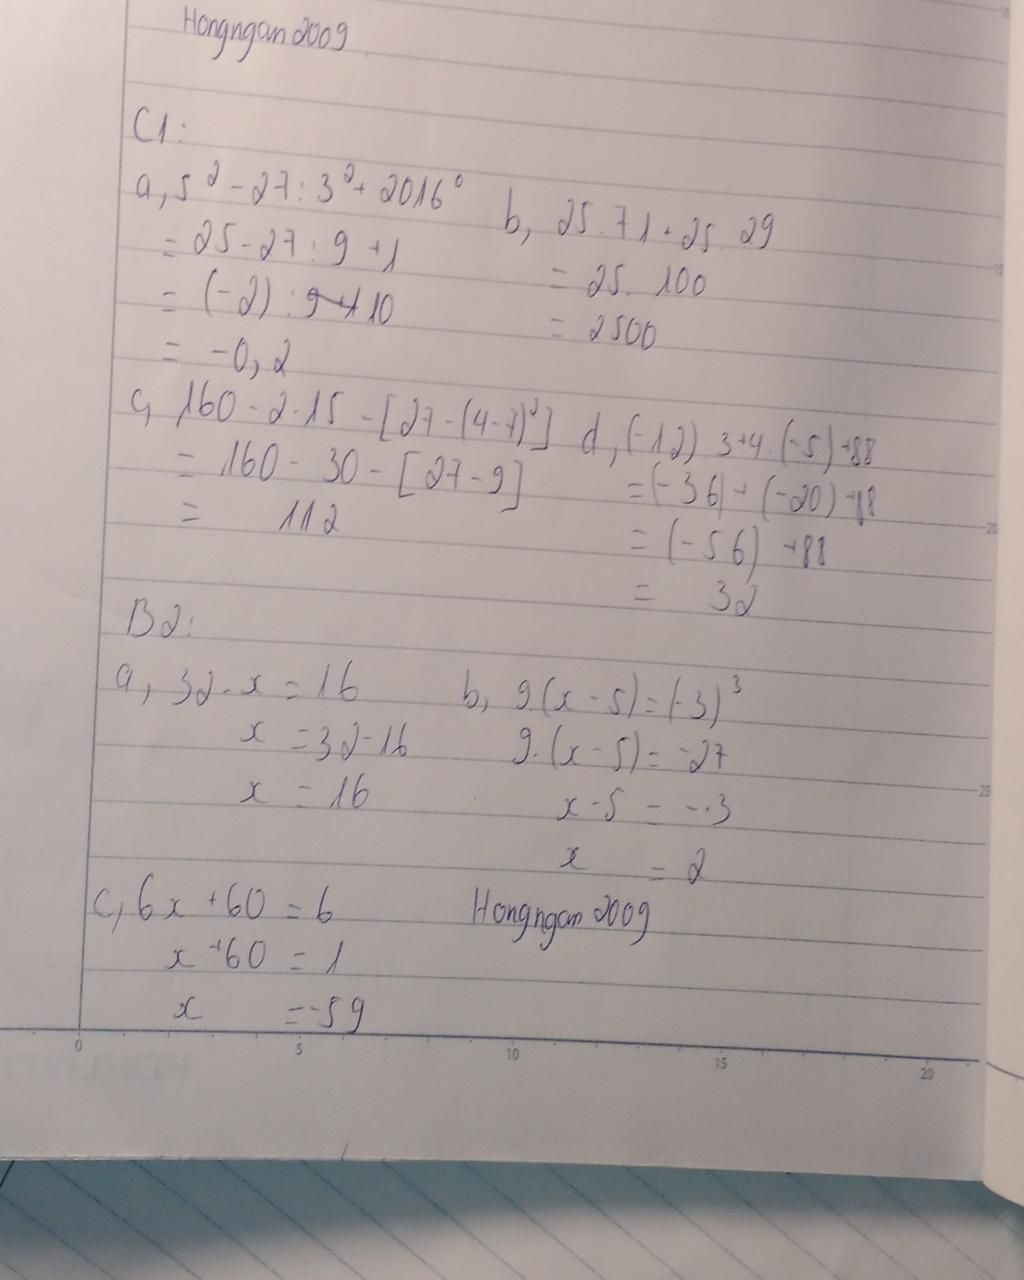 Hongngan2009
C1:
a, 5² - 27 : 3² + 2016⁰
= 25 - 27 : 9 + 1
= (-2) : 10
= -0,2
b, 25.71 + 25.29
= 25. 100
= 2500
c, 160 - 2.15 - [27 - (4-7)²]
= 160 - 30 - [27 - 9]
= 112
d, (-12) 3+4.(-5)+88
=(-36)+(-20)+88
= (-56) +88
= 32
B2:
a, 32 - x = 16
x = 32-16
x = 16
b, 9.(x-5)=(-3)³
9.(x-5)= -27
x-5 = -3
x = 2
c, 6x +60 = 6
x +60 = 1
x = -59
Hongngan2009
0 5 10 15 20
15
20
25